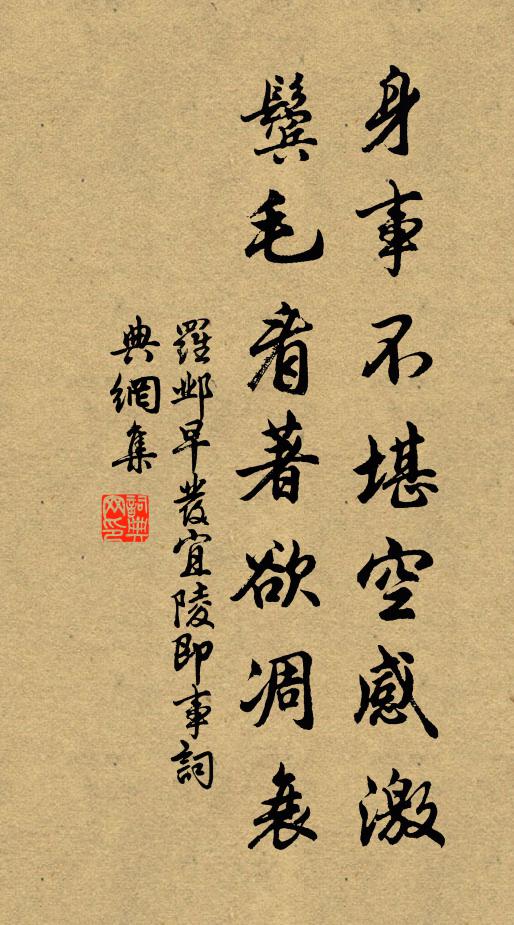 身事不堪空感激
鬢毛看著欲凋衰
羅鄴早發宜陵即事詞
典網集
詞典網印